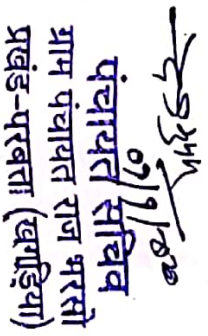 पंचायत सचिव
ग्राम पंचायत राज भरसो
प्रखंड-परबत्ता (खगड़िया)